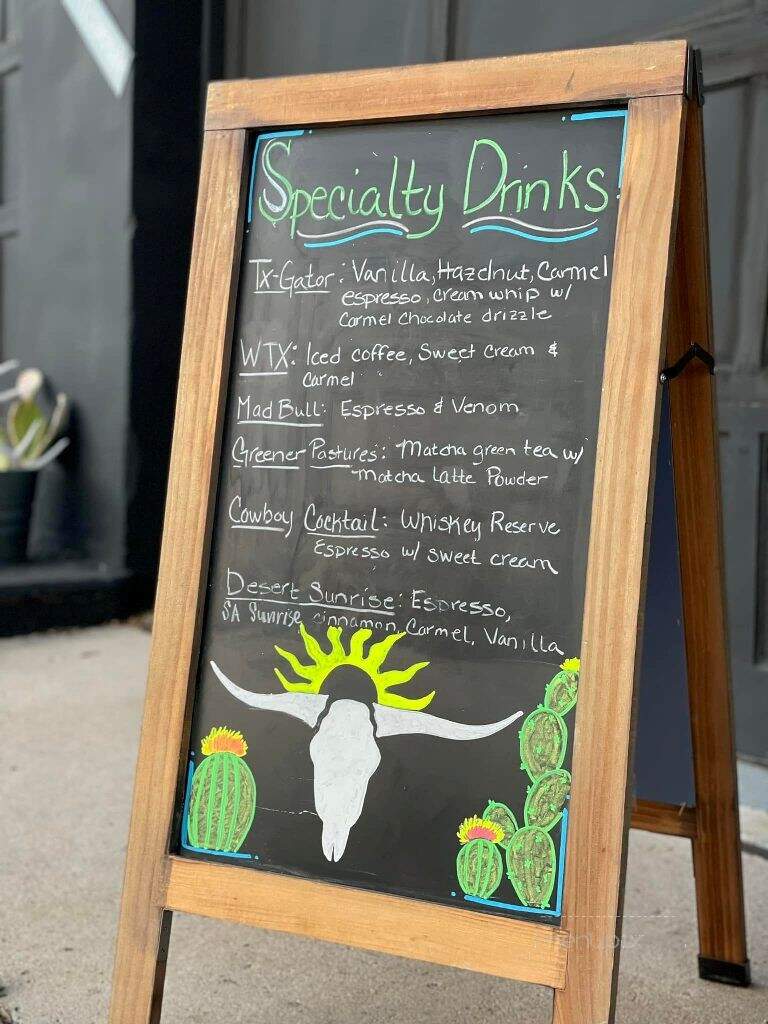 Specialty Drinks
Tx-Gator: Vanilla, Hazelnut, Carmel
espresso, cream whip w/
Carmel Chocolate drizzle
WTX: Iced coffee, Sweet cream &
Carmel
Mad Bull: Espresso & Venom
Greener Pastures: Matcha green tea w/
Matcha Latte Powder
Cowboy Cocktail: Whiskey Reserve
Espresso w/ sweet cream
Desert Sunrise: Espresso,
SA Sunrise cinnamon, Carmel, Vanilla